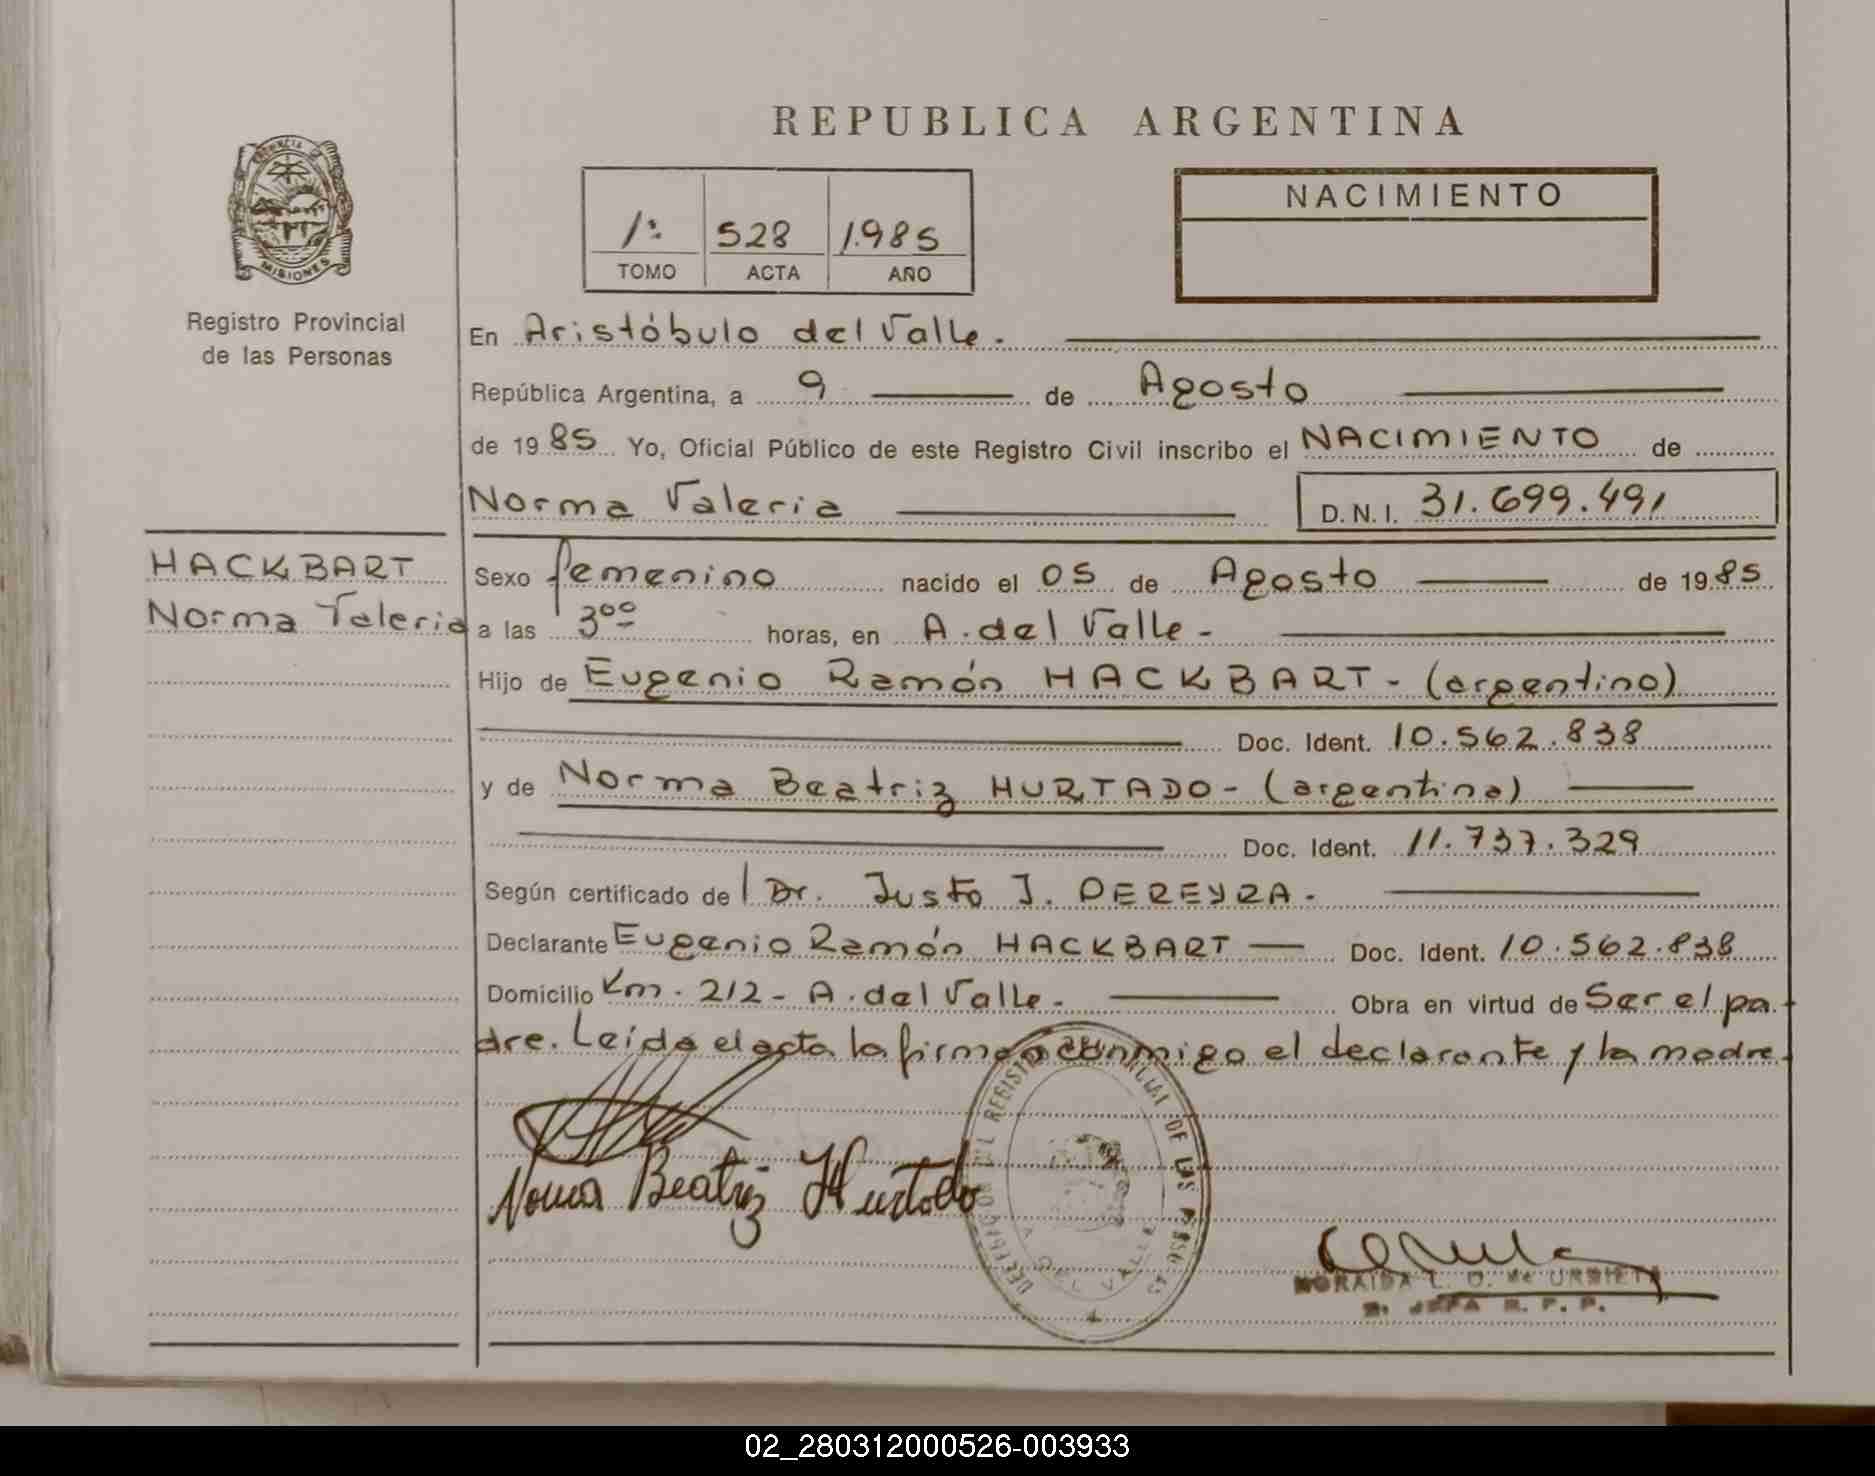 REPUBLICA ARGENTINA
PROVINCIA DE
MISIONES
Registro Provincial
de las Personas
1º 528 1.985
TOMO ACTA AÑO
NACIMIENTO
En Aristóbulo del Valle.
República Argentina, a 9 de Agosto
de 1985 Yo, Oficial Público de este Registro Civil inscribo el NACIMIENTO de
Norma Valeria D.N.I. 31.699.491
HACKBART
Norma Valeria
Sexo femenino nacido el 05 de Agosto de 1985
a las 3ºº horas, en A. del Valle -
Hijo de Eugenio Ramón HACKBART - (argentino)
Doc. Ident. 10.562.838
y de Norma Beatriz HURTADO - (argentina)
Doc. Ident. 11.737.329
Según certificado de Dr. Justo J. PEREYRA.
Declarante Eugenio Ramón HACKBART Doc. Ident. 10.562.838
Domicilio Km. 212 - A. del Valle. Obra en virtud de Ser el pa-
dre. Leída el acta la firman conmigo el declarante y la madre.
Norma Beatriz Hurtado
DELEGACION DEL REGISTRO PROVINCIAL DE LAS PERSONAS
A. DEL VALLE
NORAIDA L. D. de URBIETA
JEFA R. P. P.
02_280312000526-003933